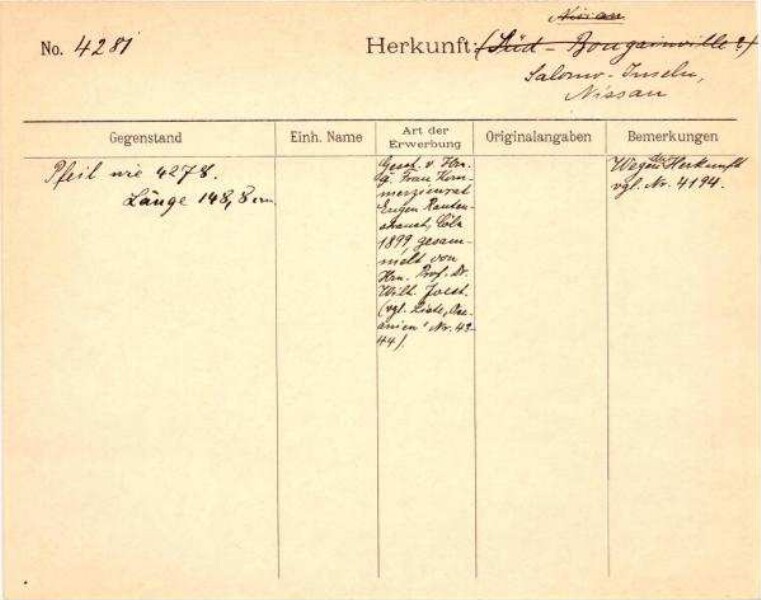 No. 4281
Herkunft: (Süd - Bougainville?)
Nissan
Salomo-Inseln,
Nissan
Gegenstand
Einh. Name
Art der
Erwerbung
Originalangaben
Bemerkungen
Pfeil wie 4278.
Länge 148,8 cm
Gesch. v. Hrn.
g. Frau Kom-
merzienrat
Eugen Rauten-
strauch, Cöln
1899, gesam-
melt von
Hrn. Prof. Dr.
Wilh. Joest.
(vgl. Liste, Oze-
anien' Nr. 43-
44).
Wegen der Herkunft
vgl. Nr. 4194.